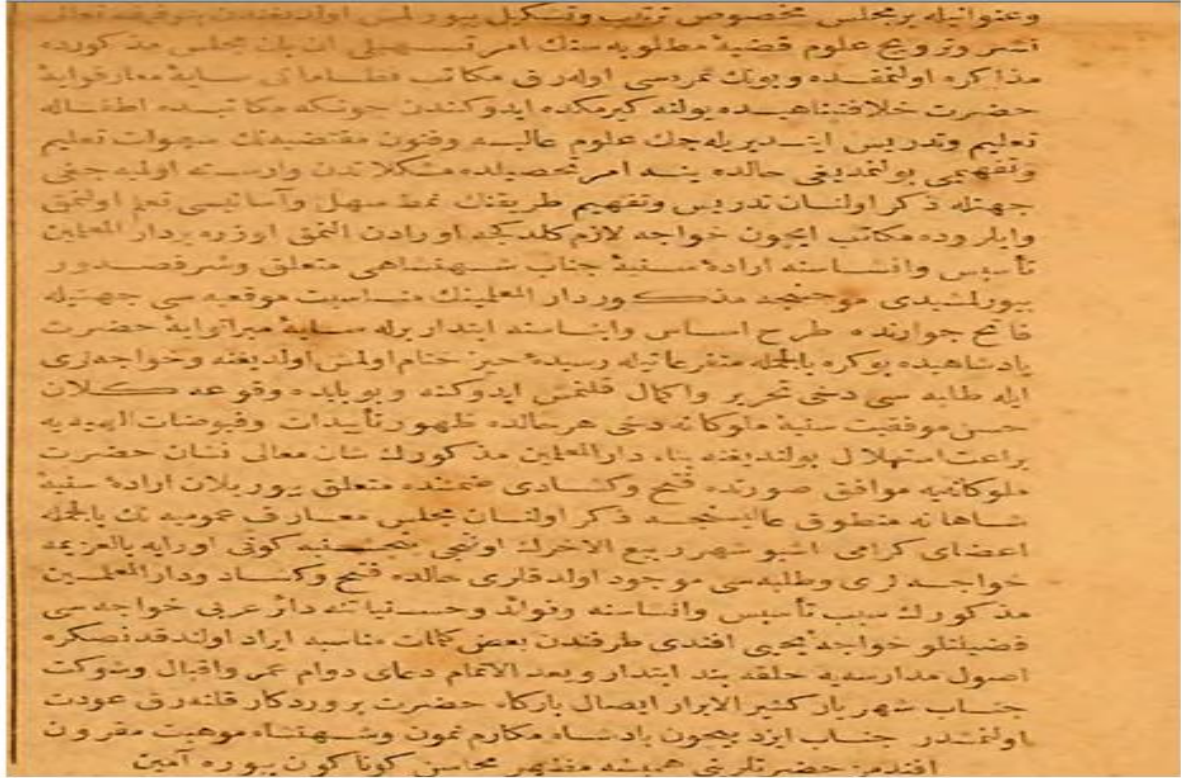 وعنوانيله بر مجلس مخصوص ترتيب وتشكيل بيورلمش اولديغندن بتوفيقه تعالى
نشر وترويج علوم قضيۀ مطلوبه سنك امر تسهيلى ايچون مجلس مذكورده
مذاكره اولنمقده وبونك ثمره سى اوله رق مكاتب نظاماتى سايۀ معارفوايۀ
حضرت خلافتپناهيده يولنه كيرمكده ايدوكندن چونكه مكاتبده اطفاله
تعليم وتدريس ايتديريله جك علوم عاليه وفنون مقتضيه نك سهولت تعليم
وتفهيمى بولنمديغى حالده ينه امر تحصيلده مشكلاتدن وارسته اوليه جغى
جهتله ذكر اولنان تدريس وتفهيم طريقنك نمط سهل وآسانيسى تعلم اولنمق
وايلروده مكاتب ايچون خواجه لازم كلدكجه اورادن النمق اوزره بر دار المعلمين
تأسيس وانشاسنه ارادۀ سنيۀ جناب شهنشاهى متعلق وشرفصدور
بيورلمشيدى موجبنجه مذكور دار المعلمينك مناسبت موقعيه سى جهتيله
فاتح جوارنده طرح اساس وابناسنه ابتدار برله سايۀ ميرانوايۀ حضرت
پادشاهيده بوكره بالجمله متفرعاتيله رسيدۀ حيز ختام اولمش اولديغنه وخواجه لرى
ايله طلبه سى دخى تحرير واكمال قلنمش ايدوكنه وبو بابده وقوعه كلان
حسن موفقيت سنيۀ ملوكانه دخى هر حالده ظهور تأييدات وفيوضات الهيه يه
براعت استهلال بولنديغنه بناء دار المعلمين مذكورك شان معالى نشان حضرت
ملوكانه يه موافق صورتده فتح وكشادى ضمننده متعلق بيوريلان ارادۀ سنيۀ
شاهانه منطوق عاليسنجه ذكر اولنان مجلس معارف عموميه نك بالجمله
اعضاى كرامى اشبو شهر ربيع الاخرك اونجى پنجشنبه كونى اورايه بالعزيمه
خواجه لرى وطلبه سى موجود اولدقلرى حالده فتح وكشاد ودار المعلمين
مذكورك سبب تأسيس وانشاسنه وفوائد وحسنياتنه دائر عربى خواجه سى
فضيلتلو خواجه يحيى افندى طرفندن بعض كلمات مناسبه ايراد اولندقدنصكره
اصول مدارسيه حلقه بند ابتدار وبعد الاتمام دعاى دوام عمر واقبال وشوكت
جناب شهريار كثير الابرار ايصال باركاه حضرت پروردكار قلنه رق عودت
اولنمشدر جناب ايزد بيچون پادشاه مكارم نمون وشهنشاه موهبت مقرون
افندمز حضرتلرينى هميشه مظهر محاسن كوناكون بيوره آمين